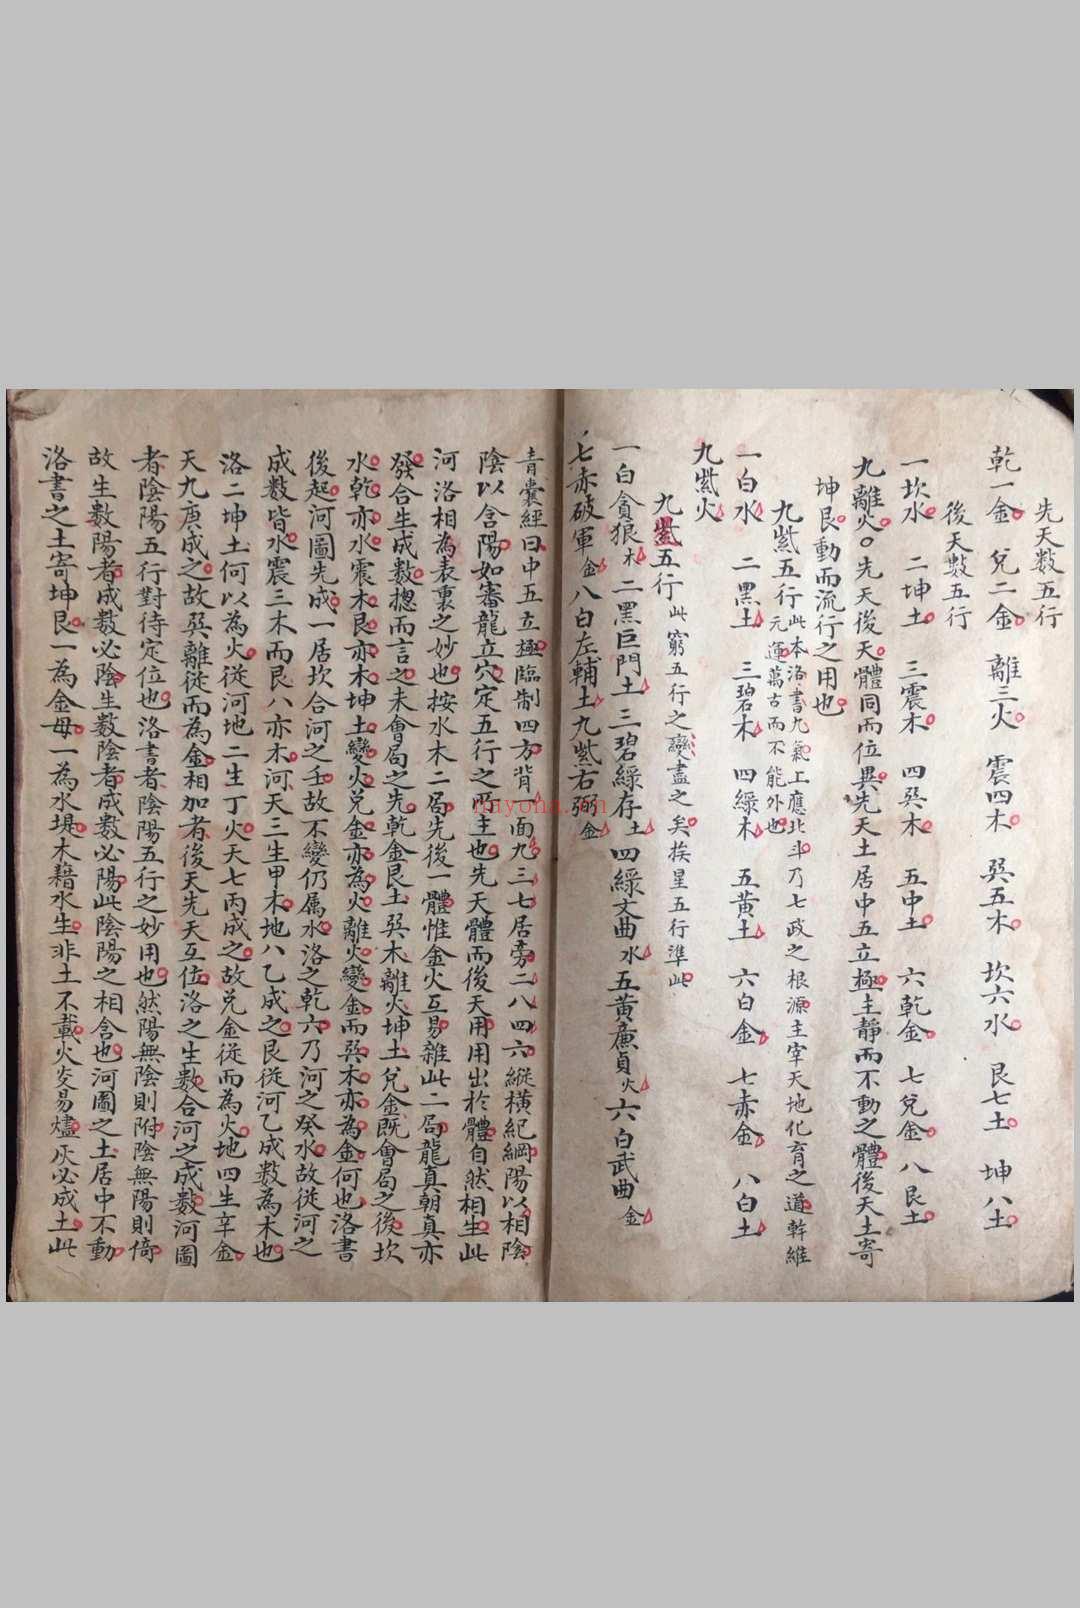 先天数五行
乾一金 兌二金 離三火 震四木 巽五木 坎六水 艮七土 坤八土
後天數五行
一坎水 二坤土 三震木 四巽木 五中土 六乾金 七兌金 八艮土
九離火○先天後天體同而位異先天土居中五立極主靜而不動之體後天土寄
坤艮動而流行之用也
九紫五行此本洛書九氣上應北斗乃七政之根源主宰天地化育之道幹維
元運萬古而不能外也
一白水 二黑土 三碧木 四綠木 五黃土 六白金 七赤金 八白土
九紫火
九紫五行此窮五行之變盡之矣挨星五行準此
一白貪狼木二黑巨門土三碧綠存土四綠文曲水五黃廉貞火六白武曲金
七赤破軍金八白左輔土九紫右弼金
青囊經曰中五立極臨制四方背一面九三七居旁二八四六縱橫紀綱陽以相陰
陰以含陽如審龍立穴定五行之所主也先天體而後天用用出於體自然相生此
河洛相為表裏之妙也按水木二局先後一體惟金火互易雜此二局龍真朝真亦
發合生成數摠而言之未會局之先乾金艮土巽木離火坤土兌金既會局之後坎
水乾亦水震木艮亦木坤土變火兌金亦為火離火變金而巽木亦為金何也洛書
後起河圖先成一居坎合河之壬故不變仍属水洛之乾六乃河之癸水故從河之
成数皆水震三木而艮八亦木河天三生甲木地八乙成之艮從河乙成數為木也
洛二坤土何以為火從河地二生丁火天七丙成之故兌金從而為火地四生辛金
天九庚成之故巽離從而為金相加者後天先天互位洛之生數合河之成數河圖
者陰陽五行對待定位也洛書者陰陽五行之妙用也然陽無陰則附陰無陽則倚
故生數陽者成數必陰生数陰者成數必陽此陰陽之相含也河圖之土居中不動
洛書之土寄坤艮一為金母一為水堤木藉水生非土不載火炎易燼灰必成土此
nnyoha.cn